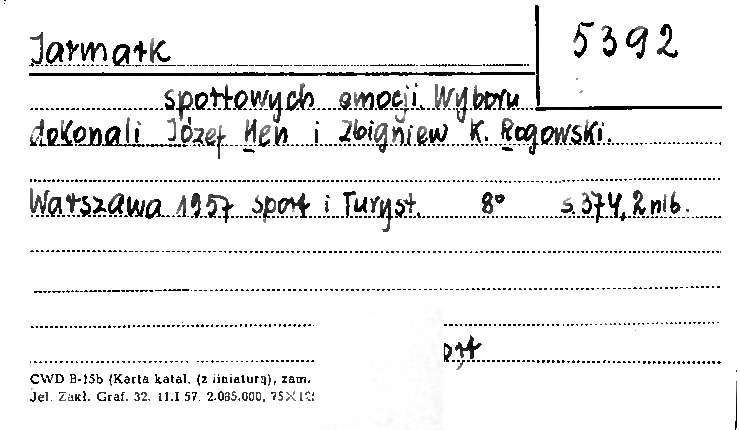 Jarmark
5392
sportowych emocji. Wyboru
dokonali Józef Hen i Zbigniew K. Rogowski.
Warszawa 1957 Sport i Turyst. 8° s. 374, 2 nlb.
CWD B-15b (Karta katal. (z liniaturą), zam.
Jel. Zakł. Graf. 32. 11.I 57. 2.085.000, 75×125